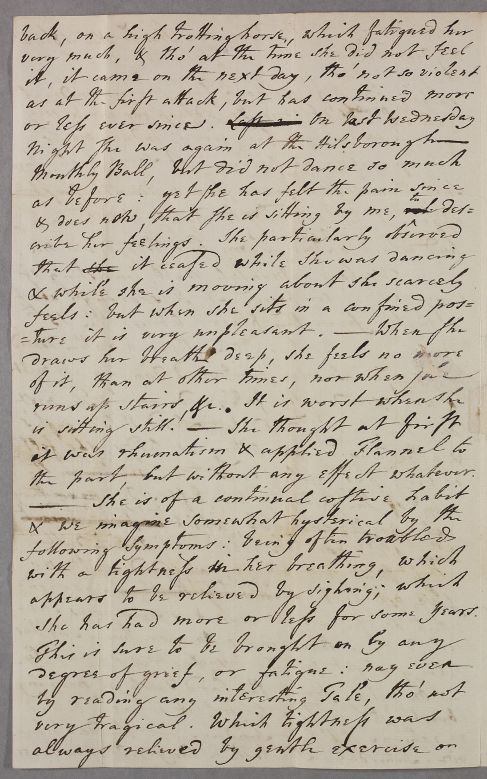 back, on a high trotting horse, which fatigued her
very much, & tho' at the time she did not feel
it, it came on the next day, tho' not so violent
as at the first attack, but has continued more
or less ever since. On last Wednesday
night she was again at the Hilsborough
Monthly Ball, but did not dance so much
as before: yet she has felt the pain since
& does now, that she is sitting by me, to des=
cribe her feelings. She particularly observed
that it ceased while she was dancing
& while she is moving about she scarcely
feels: but when she sits in a confined pos=
=ture it is very unpleasant. — When she
draws her breath deep, she feels no more
of it, than at other times, nor when she
runs up stairs, &c. It is worst when she
is sitting still. — She thought at first
it was rheumatism & applied Flannel to
the part, but without any effect whatever.
— She is of a continual costive habit
& we imagine somewhat hysterical by the
following symptoms: being often troubled
with a tightness in her breathing, which
appears to be relieved by sighing; which
she has had more or less for some years.
This is sure to be brought on by any
degree of grief, or fatigue: nay even
by reading any interesting Tale, tho' not
very tragical. Which tightness was
always relieved by gentle exercise on